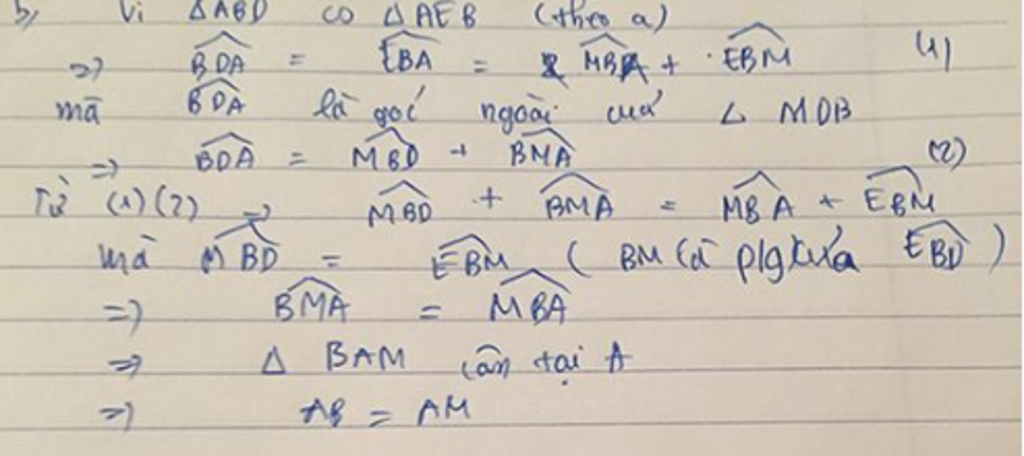 b, Vì ΔABD có ΔAEB (theo a)
=> \widehat{BDA} = \widehat{EBA} = \widehat{MBA} + \widehat{EBM} (1)
mà \widehat{BDA} là góc ngoài của Δ MDB
=> \widehat{BDA} = \widehat{MBD} + \widehat{BMA} (2)
Từ (1)(2) => \widehat{MBD} + \widehat{BMA} = \widehat{MBA} + \widehat{EBM}
mà \widehat{MBD} = \widehat{EBM} ( BM là p/g của \widehat{EBD} )
=> \widehat{BMA} = \widehat{MBA}
=> Δ BAM cân tại A
=> AB = AM